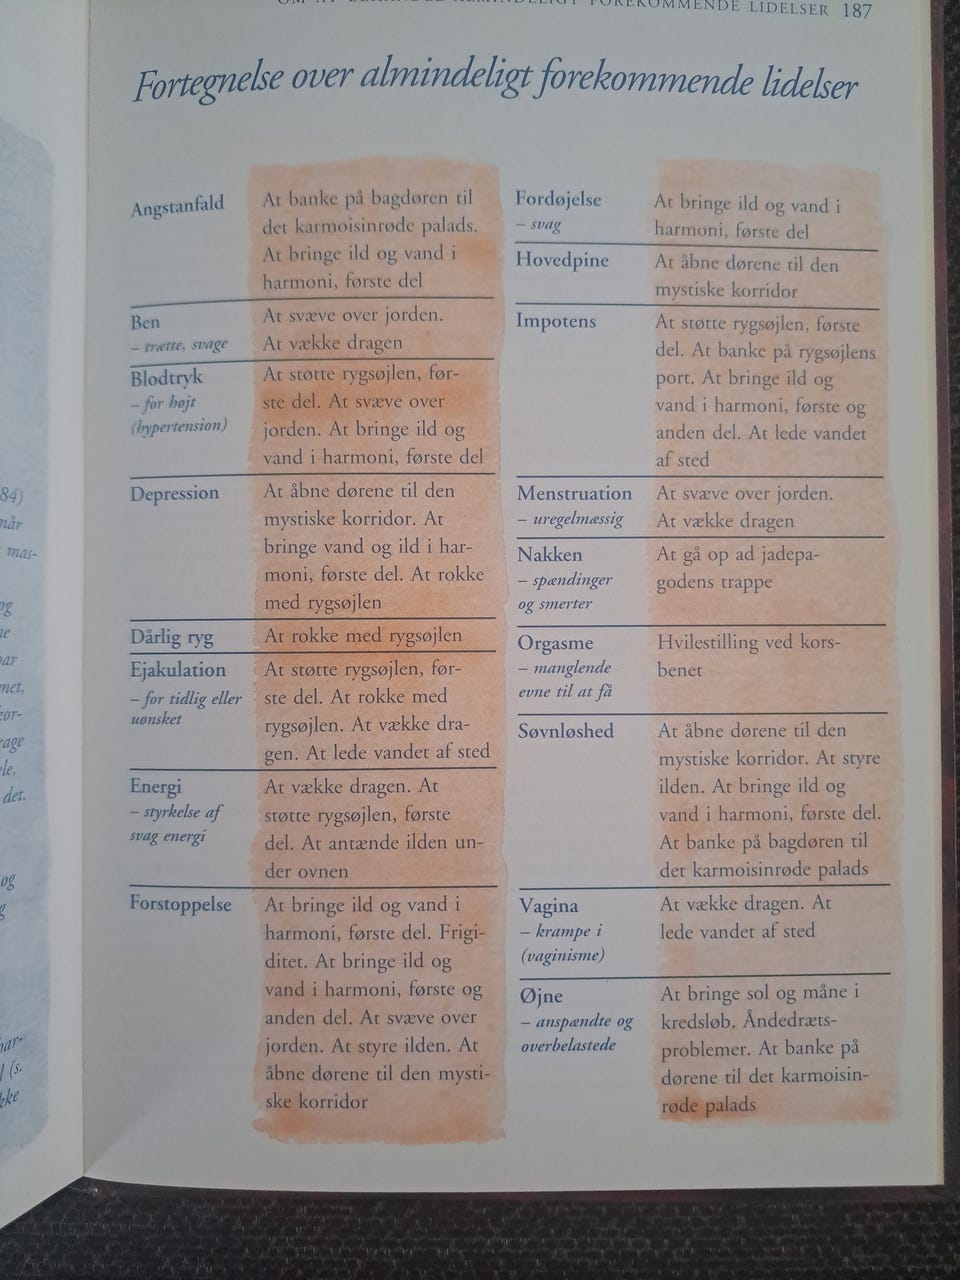 OM AT BEHANDLE ALMINDELIGT FOREKOMMENDE LIDELSER 187
Fortegnelse over almindeligt forekommende lidelser
Angstanfald
At banke på bagdøren til
det karmoisinrøde palads.
At bringe ild og vand i
harmoni, første del
Ben
– trætte, svage
At svæve over jorden.
At vække dragen
Blodtryk
– for højt
(hypertension)
At støtte rygsøjlen, før-
ste del. At svæve over
jorden. At bringe ild og
vand i harmoni, første del
Depression
At åbne dørene til den
mystiske korridor. At
bringe vand og ild i har-
moni, første del. At rokke
med rygsøjlen
Dårlig ryg
At rokke med rygsøjlen
Ejakulation
– for tidlig eller
uønsket
At støtte rygsøjlen, før-
ste del. At rokke med
rygsøjlen. At vække dra-
gen. At lede vandet af sted
Energi
– styrkelse af
svag energi
At vække dragen. At
støtte rygsøjlen, første
del. At antænde ilden un-
der ovnen
Forstoppelse
At bringe ild og vand i
harmoni, første del. Frigi-
ditet. At bringe ild og
vand i harmoni, første og
anden del. At svæve over
jorden. At styre ilden. At
åbne dørene til den mysti-
ske korridor
Fordøjelse
– svag
At bringe ild og vand i
harmoni, første del
Hovedpine
At åbne dørene til den
mystiske korridor
Impotens
At støtte rygsøjlen, første
del. At banke på rygsøjlens
port. At bringe ild og
vand i harmoni, første og
anden del. At lede vandet
af sted
Menstruation
– uregelmæssig
At svæve over jorden.
At vække dragen
Nakken
– spændinger
og smerter
At gå op ad jadepa-
godens trappe
Orgasme
– manglende
evne til at få
Hvilestilling ved kors-
benet
Søvnløshed
At åbne dørene til den
mystiske korridor. At styre
ilden. At bringe ild og
vand i harmoni, første del.
At banke på bagdøren til
det karmoisinrøde palads
Vagina
– krampe i
(vaginisme)
At vække dragen. At
lede vandet af sted
Øjne
– anspændte og
overbelastede
At bringe sol og måne i
kredsløb. Åndedræts-
problemer. At banke på
dørene til det karmoisin-
røde palads
84)
når
mas-
og
det.
og